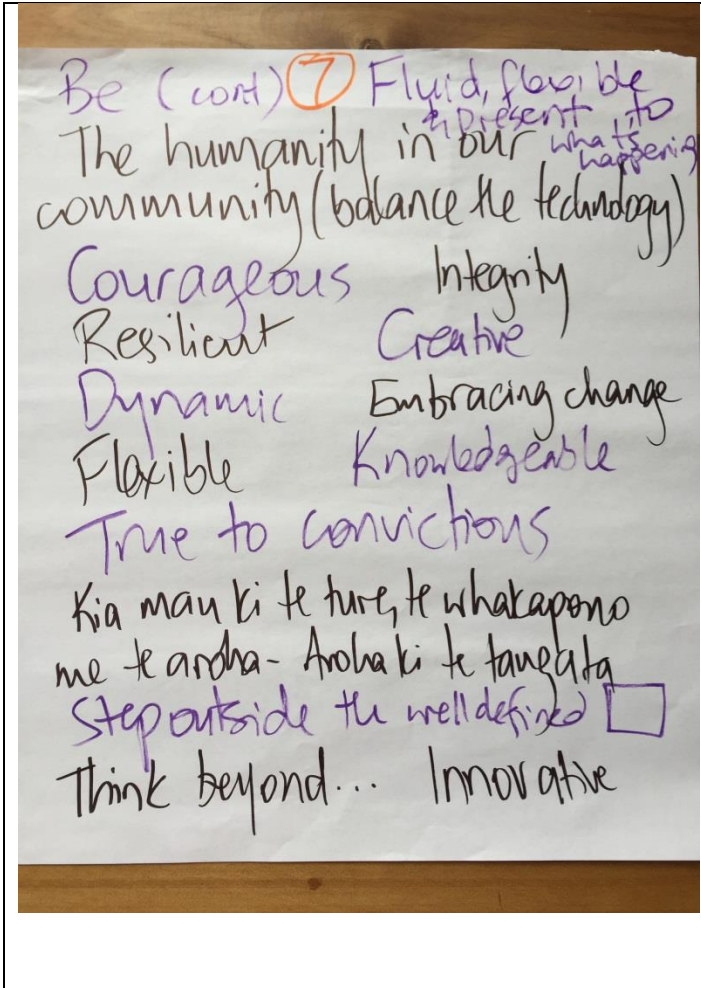 Be (cont) 7 Fluid, flexible
& present to
what's
happening
The humanity in our
community (balance the technology)
Courageous Integrity
Resilient Creative
Dynamic Embracing change
Flexible Knowledgeable
True to convictions
Kia mau ki te ture, te whakapono
me te aroha - Aroha ki te tangata
Step outside the well defined
Think beyond... Innovative